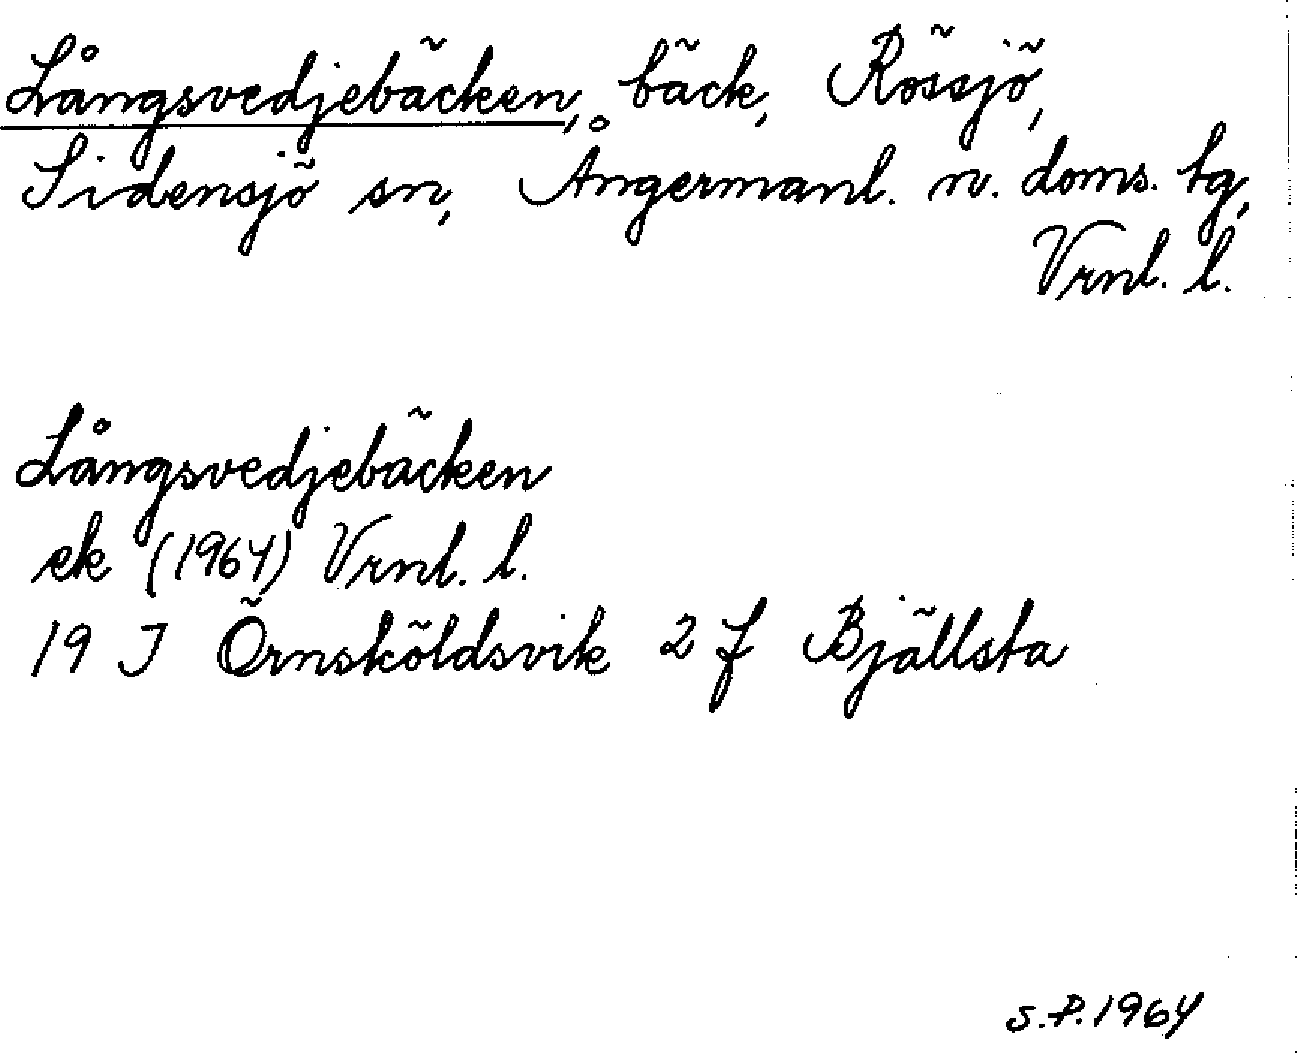 Långsvedjebäcken, bäck, Rössjö,
Sidensjö sn, Ångermanl. n. doms. tg,
Vrnl. l.
Långsvedjebäcken
ek (1964) Vrnl. l.
19 J Örnsköldsvik 2 f Bjällsta
S.P. 1964